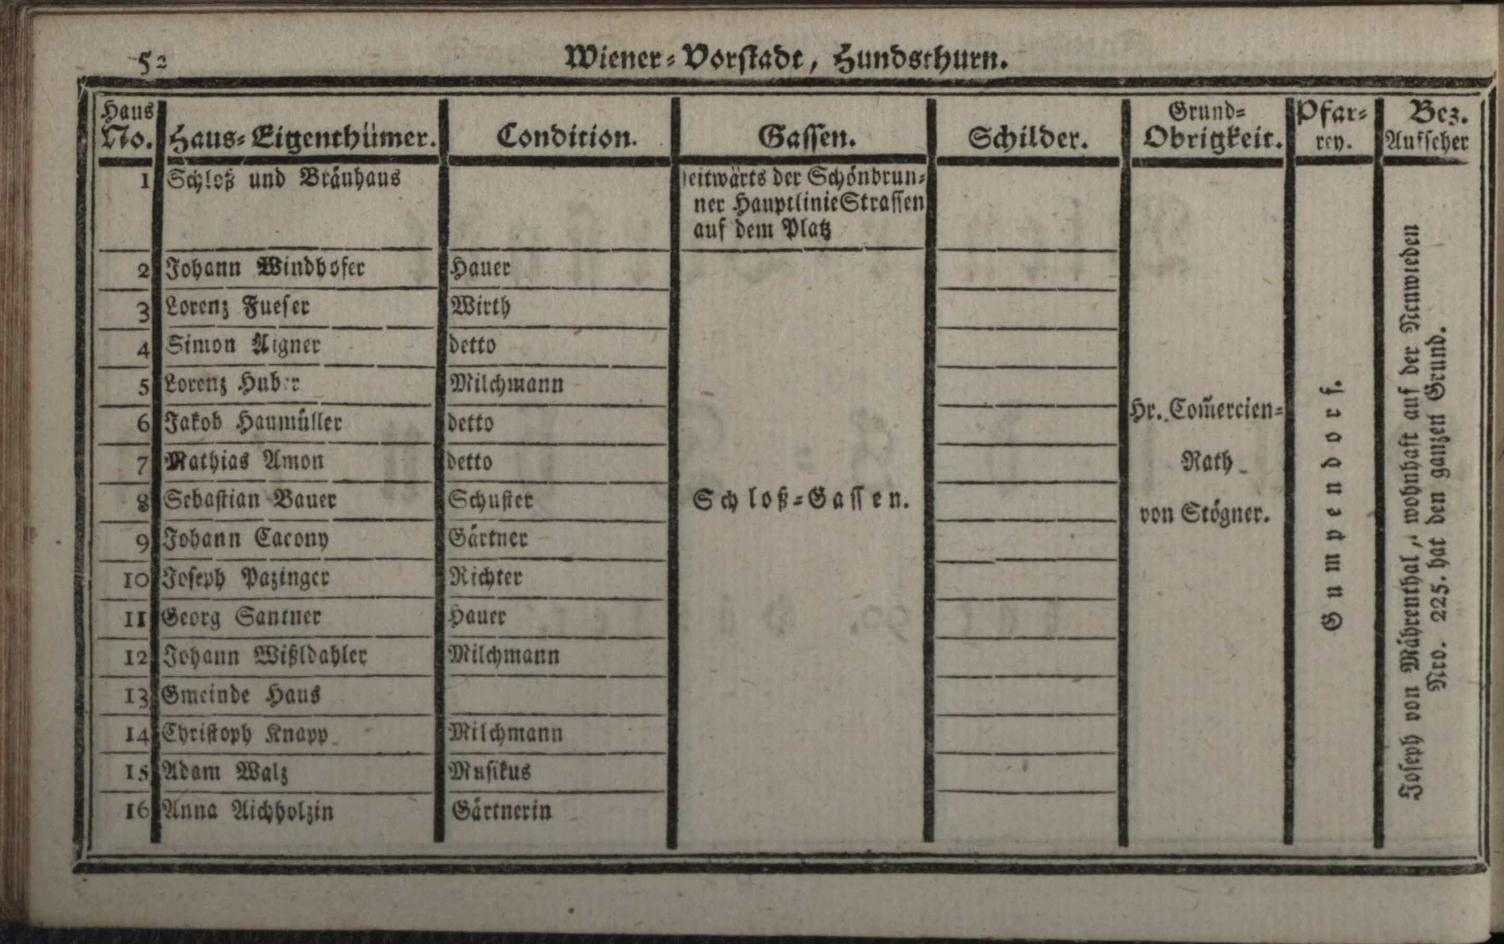 52
Wiener-Vorstadt, Hundsthurn.
Haus No. Haus-Eigenthümer. Condition. Gassen. Schilder. Grund-Obrigkeit. Pfar-rey. Bez. Aufseher
1 Schloß und Bräuhaus seitwärts der Schönbrun-
ner Hauptlinie Strassen
auf dem Platz
2 Johann Windhofer Hauer
3 Lorenz Fueser Wirth
4 Simon Aigner detto
5 Lorenz Huber Milchmann
6 Jakob Haumüller detto
7 Mathias Amon detto
8 Sebastian Bauer Schuster
9 Johann Cacony Gärtner
10 Joseph Pazinger Richter
11 Georg Santner Hauer
12 Johann Wißldahler Milchmann
13 Gmeinde Haus
14 Christoph Knapp Milchmann
15 Adam Walz Musikus
16 Anna Aichholzin Gärtnerin
Schloß-Gassen.
Hr. Com̄ercien-
Rath
von Stögner.
Gumpendorf.
Joseph von Mährenthal, wohnhaft auf der Neuwieden
Nro. 225. hat den ganzen Grund.